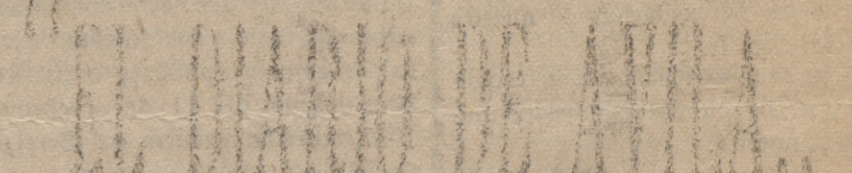 "EL DIARIO DE AVILA"